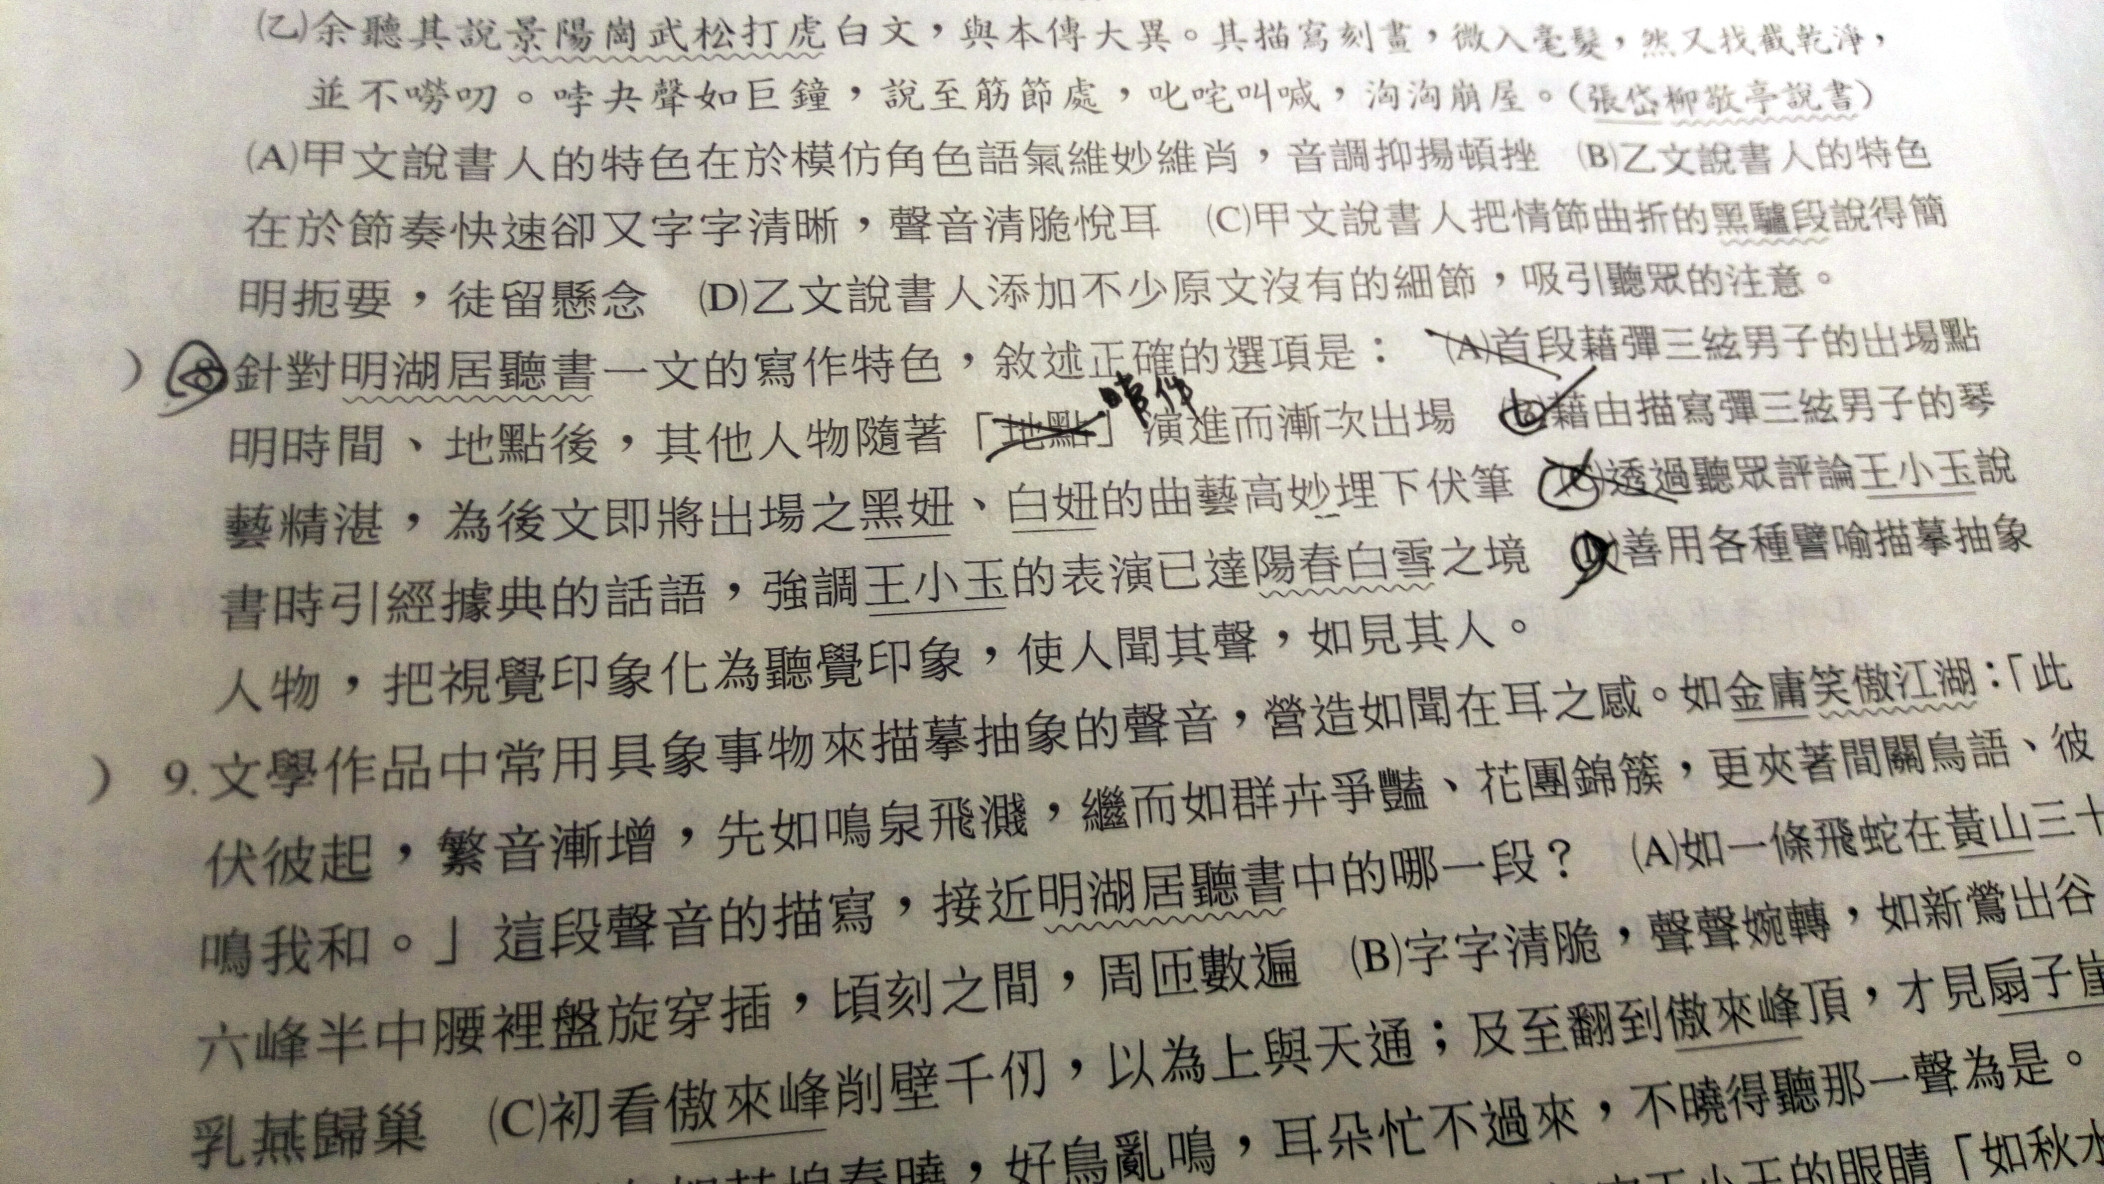 (乙)余聽其說景陽崗武松打虎白文，與本傳大異。其描寫刻畫，微入毫髮，然又找截乾淨，
並不嘮叨。哱夬聲如巨鐘，說至筋節處，叱咤叫喊，洶洶崩屋。(張岱柳敬亭說書)
(A)甲文說書人的特色在於模仿角色語氣維妙維肖，音調抑揚頓挫 (B)乙文說書人的特色
在於節奏快速卻又字字清晰，聲音清脆悅耳 (C)甲文說書人把情節曲折的黑驢段說得簡
明扼要，徒留懸念 (D)乙文說書人添加不少原文沒有的細節，吸引聽眾的注意。
) 8.針對明湖居聽書一文的寫作特色，敘述正確的選項是： (A)首段藉彈三絃男子的出場點
明時間、地點後，其他人物隨著「地點」演進而漸次出場 (B)藉由描寫彈三絃男子的琴
藝精湛，為後文即將出場之黑妞、白妞的曲藝高妙埋下伏筆 (C)透過聽眾評論王小玉說
書時引經據典的話語，強調王小玉的表演已達陽春白雪之境 (D)善用各種譬喻描摹抽象
人物，把視覺印象化為聽覺印象，使人聞其聲，如見其人。
) 9.文學作品中常用具象事物來描摹抽象的聲音，營造如聞在耳之感。如金庸笑傲江湖：「此
伏彼起，繁音漸增，先如鳴泉飛濺，繼而如群卉爭豔、花團錦簇，更夾著間關鳥語、彼
鳴我和。」這段聲音的描寫，接近明湖居聽書中的哪一段？ (A)如一條飛蛇在黃山三十
六峰半中腰裡盤旋穿插，頃刻之間，周匝數遍 (B)字字清脆，聲聲婉轉，如新鶯出谷
乳燕歸巢 (C)初看傲來峰削壁千仞，以為上與天通；及至翻到傲來峰頂，才見扇子崖
塢春曉，好鳥亂鳴，耳朵忙不過來，不曉得聽那一聲為是。
王小玉的眼睛「如秋水